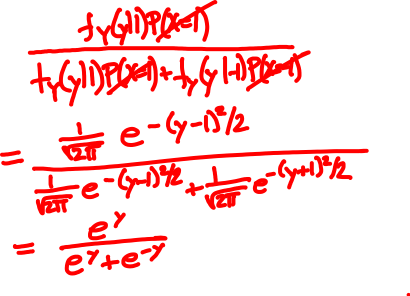 f_Y(y|1)P(X=1)
f_Y(y|1)P(X=1)+f_Y(y|-1)P(X=-1)
= 1/√2π e^-(y-1)²/2
1/√2π e^-(y-1)²/2 + 1/√2π e^-(y+1)²/2
= e^y
e^y+e^-y